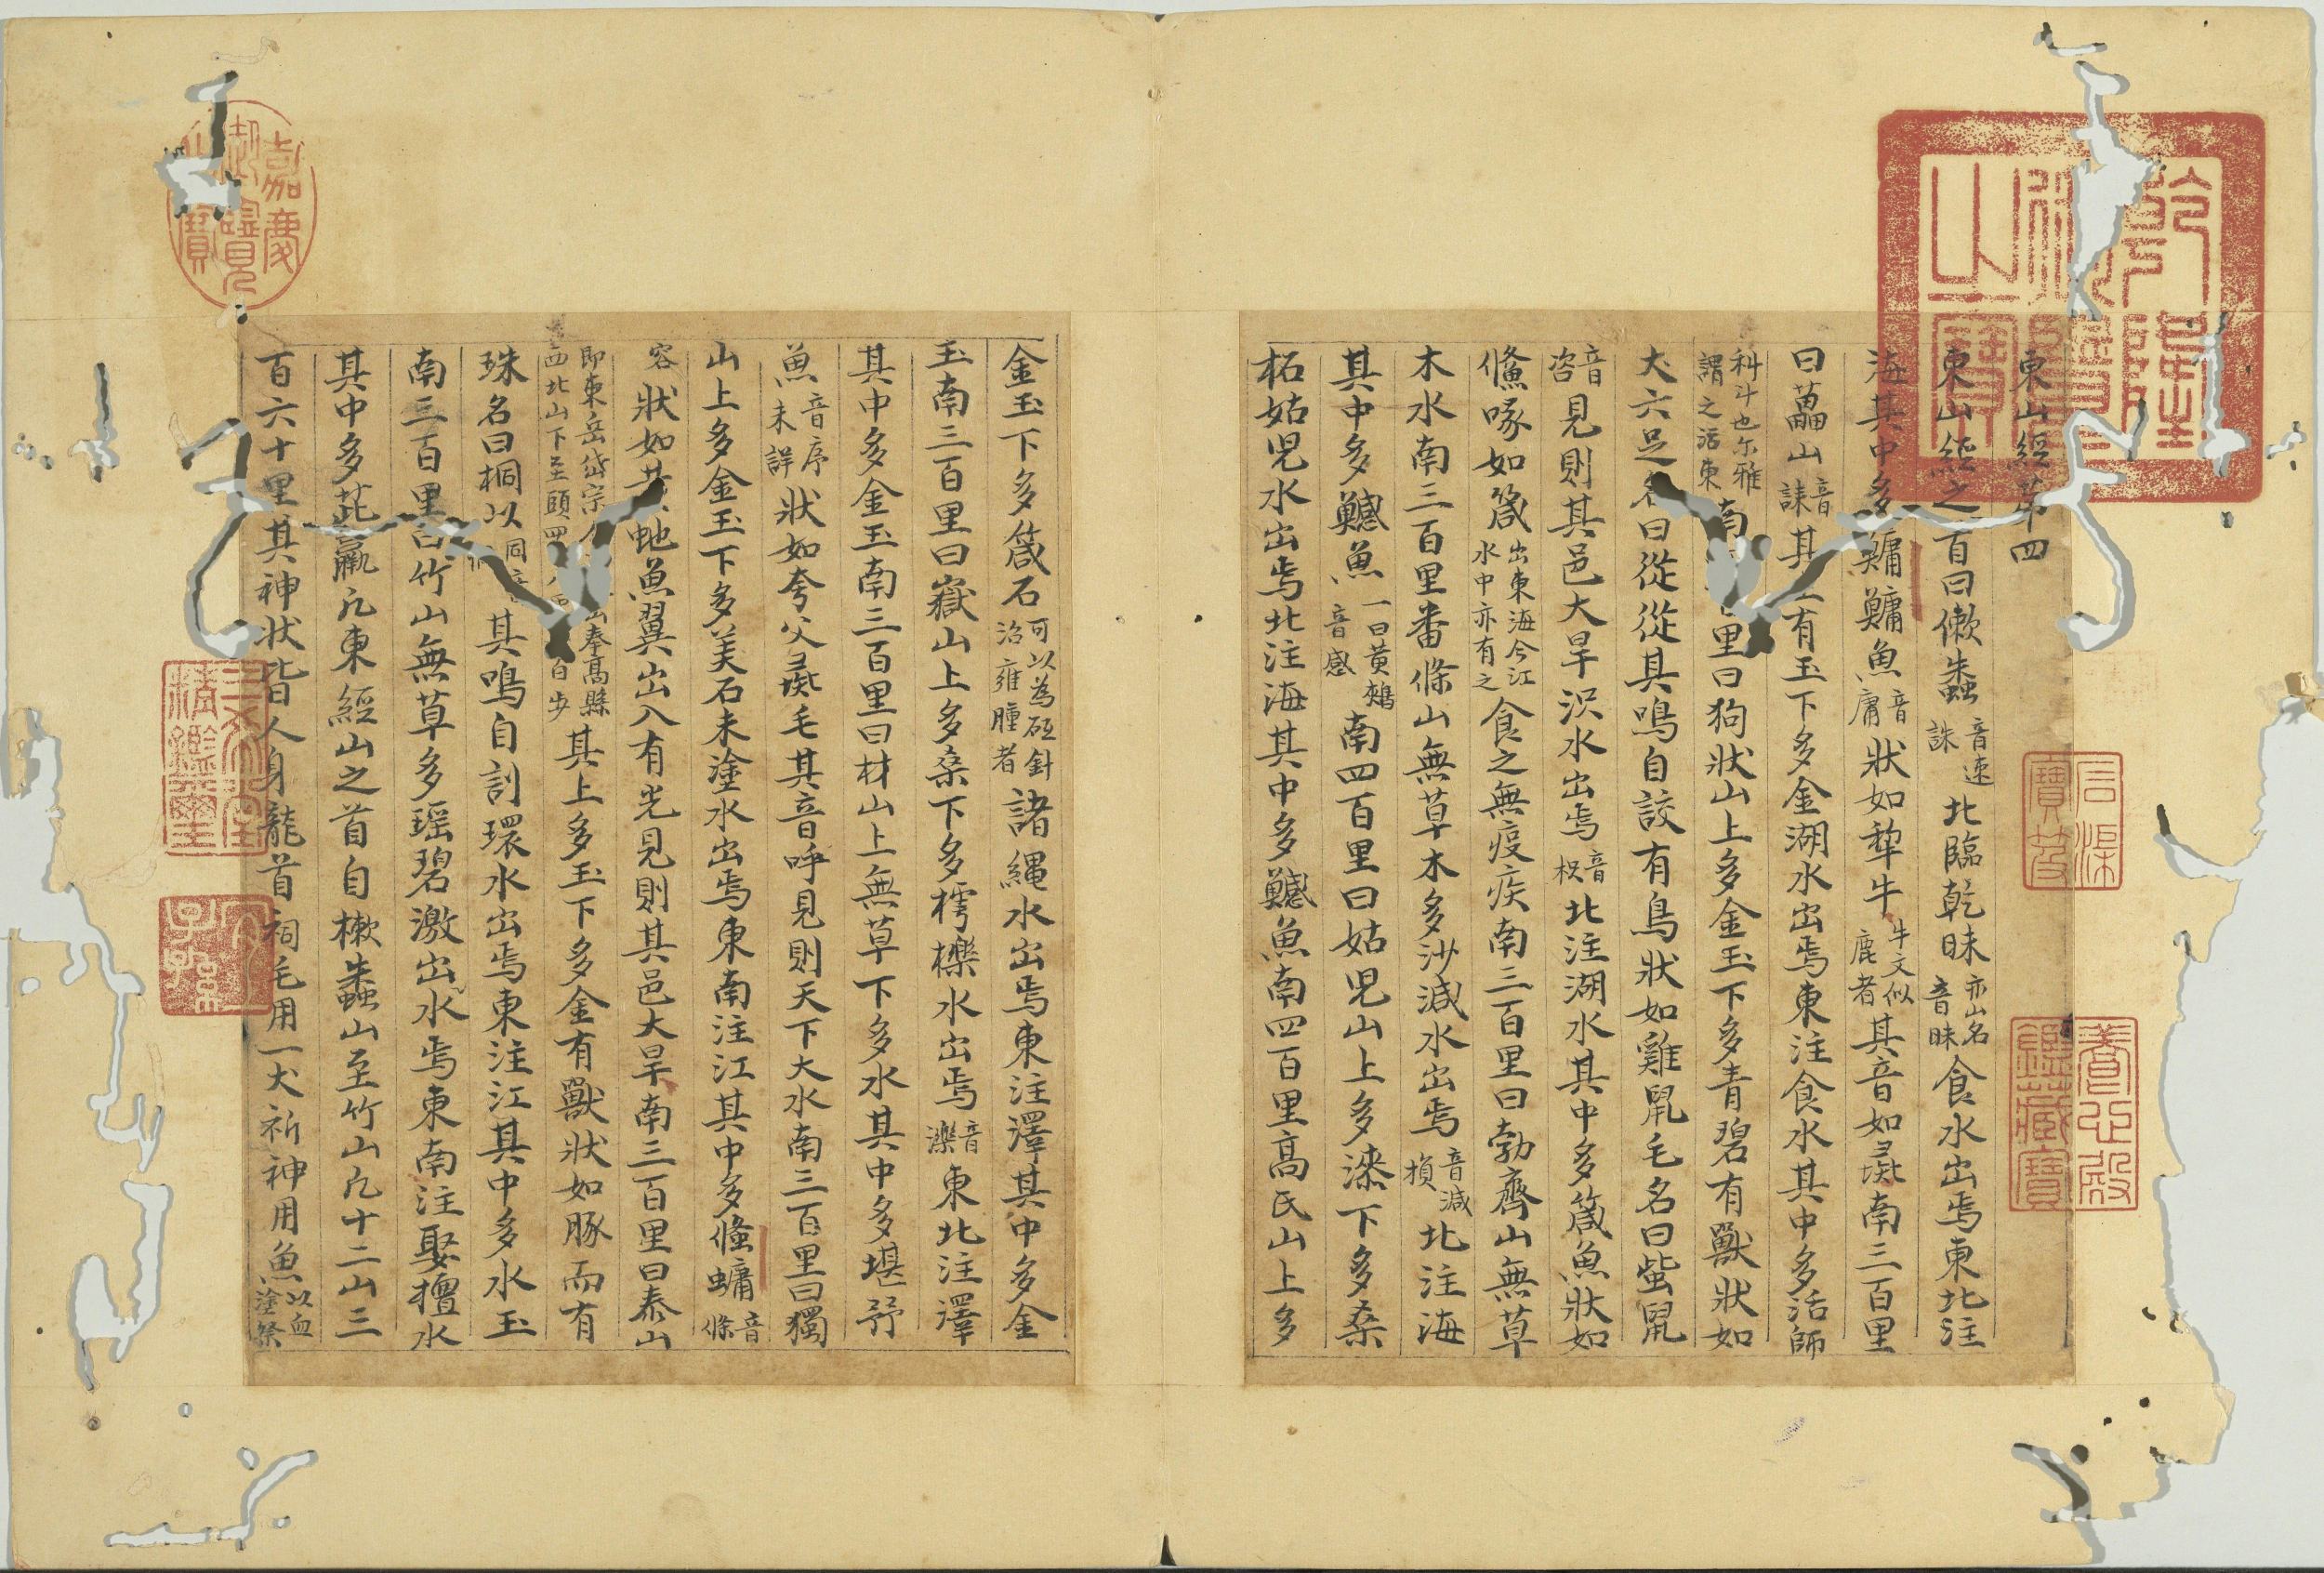 東山經第四
東山經之首曰樕𧑤音速 誅北臨乾昧亦山名 音昧食水出焉東北注
海其中多鱅鱅魚音 庸狀如犂牛牛文似 鹿者其音如彘南三百里
曰藟山音 誄其有玉下多金湖水出焉東注食水其中多活師
科斗也尒雅 謂之活東南里曰狗狀山上多金玉下多青碧有獸狀如
犬六足名曰從從其鳴自詨有鳥狀如雞鼠毛名曰蚩鼠
音 咨見則其邑大旱沢水出焉音 枳北注湖水其中多箴魚狀如
鯈喙如箴出東海今江 水中亦有之食之無疫疾南三百里曰勃齊山無草
木水南三百里番條山無草木多沙減水出焉音減 損北注海
其中多鱤魚一曰黃鶎 音感南四百里曰姑児山上多漆下多桑
柘姑児水出焉北注海其中多鱤魚南四百里高氏山上多
金玉下多箴石可以為砭針 治雍腫者諸繩水出焉東注澤其中多金
玉南三百里曰嶽山上多桑下多樗櫟水出焉音 濼東北注澤
其中多金玉南三百里曰材山上無草下多水其中多堪㐨
魚音序 未詳狀如夸父彘毛其音呼見則天下大水南三百里曰獨
山上多金玉下多美石未塗水出焉東南注江其中多鯈䗤音 條
容狀如黃虵魚翼出入有光見則其邑大旱南三百里曰泰山
即東岳岱宗奉高縣 西北山下至頤四百步其上多玉下多金有獸狀如豚而有
珠名曰狪以同音其鳴自訓環水出焉東注江其中多水玉
南三百里曰竹山無草多瑤碧激出水焉東南注娶檀水
其中多茈蠃凡東經山之首自樕𧑤山至竹山凡十二山三
百六十里其神狀皆人身龍首祠毛用一犬祈神用魚以血 塗祭
乾隆御覽之寶
嘉慶御覽之寶
三希堂精鑑璽
宜子孫
石渠寶笈
養心殿鑑藏寶